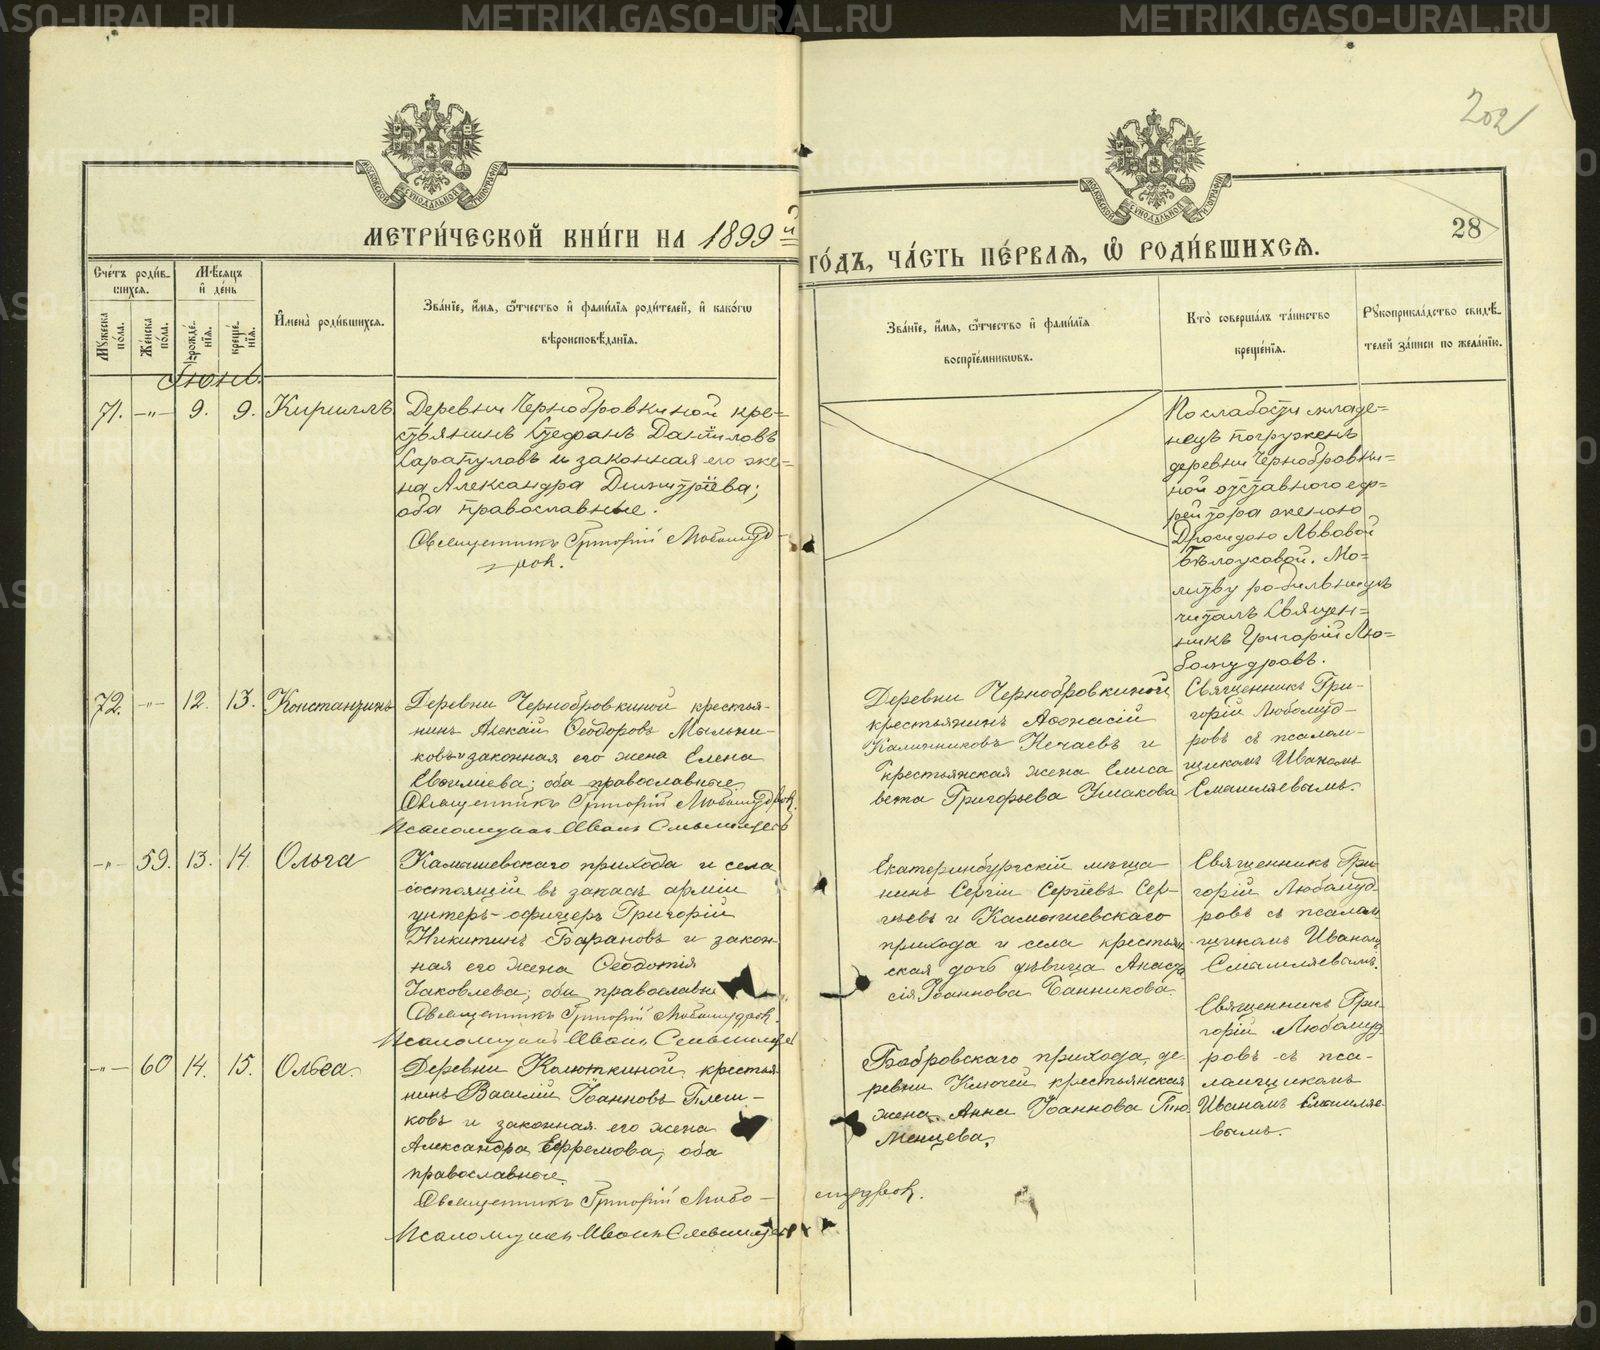 METRIKI.GASO-URAL.RU
202
28
МЕТРИ́ЧЕСКОЙ КНИ́ГИ НА 1899й
ГО́ДЪ, ЧА́СТЬ ПЕ́РВАѦ, Ѡ҆ РОДИ́ВШИХСѦ.
Сче́тъ роди́в-
шихсѧ.
Мѣ́сяцъ
и҆ де́нь
Му́жеска по́ла.
Же́нска по́ла.
рожде́-
нїѧ.
креще́-
нїѧ.
И҆мена̀ роди́вшихсѧ.
Зва́нїе, и҆́мѧ, ѻ҆́тчество и҆ фами́лїѧ роди́телей, и҆ како́гѡ
вѣроисповѣ́данїѧ.
Зва́нїе, и҆́мѧ, ѻ҆́тчество и҆ фами́лїѧ
воспрїе́мникѡвъ.
Кто̀ соверша́лъ та́инство
креще́нїѧ.
Рꙋкоприкла́дство свидѣ́-
телей за́писи по жела́нїю.
Іюнь.
71. —„— 9. 9. Кириллъ
Деревни Чернобровкиной кре=
стьянинъ Стефанъ Даніиловъ
Сарапуловъ и законная его же=
на Александра Димитріева;
оба православные.
Священникъ Григорій Любомуд-
ровъ.
По слабости младе=
нецъ погруженъ
деревни Чернобровки=
ной отставного еф=
рейтора женою
Дросидою Львовой
Бѣлоусовой. Мо=
литву родильницѣ
читалъ Священ=
никъ Григорій Лю=
бомудровъ.
72. —„— 12. 13. Константинъ
Деревни Чернобровкиной крестья-
нинъ Алексѣй Ѳеодоровъ Мыльни-
ковъ и законная его жена Елена
оба православные.
Священникъ Григорій Любомудровъ.
Псаломщикъ Иванъ
Деревни Чернобровкиной
крестьянинъ Аѳанасій
Калинниковъ Нечаевъ и
крестьянская жена Елиса
вета Григорьева Ушакова
Священникъ Гри-
горій Любомуд-
ровъ съ псалом-
щикомъ Иваномъ
—„— 59. 13. 14. Ольга
Камышевскаго прихода и села
состоящій въ запасѣ арміи
унтеръ-офицеръ Григорій
Никитинъ Барановъ и закон-
ная его жена Ѳеодотія
Іаковлева; оба православн
Священникъ Григорій Любомудровъ.
Псаломщикъ Иванъ
Екатеринбургскій мѣща
нинъ Сергій Сергіевъ Сер-
гѣевъ и Камышевскаго
прихода и села крестьян
ская дочь дѣвица Анаста
сія Іоаннова Банникова.
Священникъ Гри
горій Любомуд
ровъ съ псалом
щикомъ Иваном
—„— 60 14. 15. Ольга.
Деревни Колюткиной крестья-
нинъ Василій Іоанновъ Плеш-
ковъ и законная его жена
Александра Ефремова, оба
православные.
Священникъ Григорій Любо-
мудровъ.
Псаломщикъ Иванъ
Бобровскаго прихода, де-
ревни Ключей крестьянская
жена Анна Іоаннова Тю
менцева.
Священникъ Гри-
горій Любомуд
ровъ съ пса-
ломщикомъ
Иваномъ